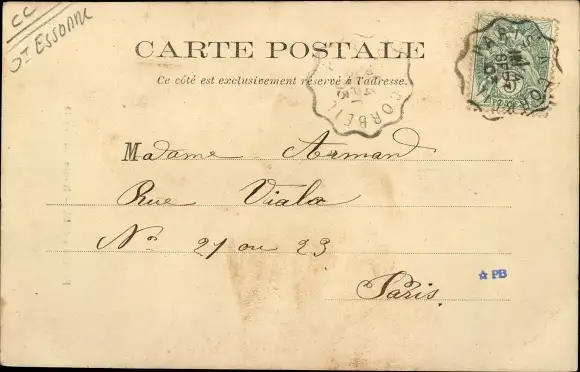 CC
Dt ESSONNE
CARTE POSTALE
Ce côté est exclusivement réservé à l'adresse.
CORBEIL
PARIS A CORBEIL
Madame Arman
Rue Viala
No 21 ou 23
Paris.
PB